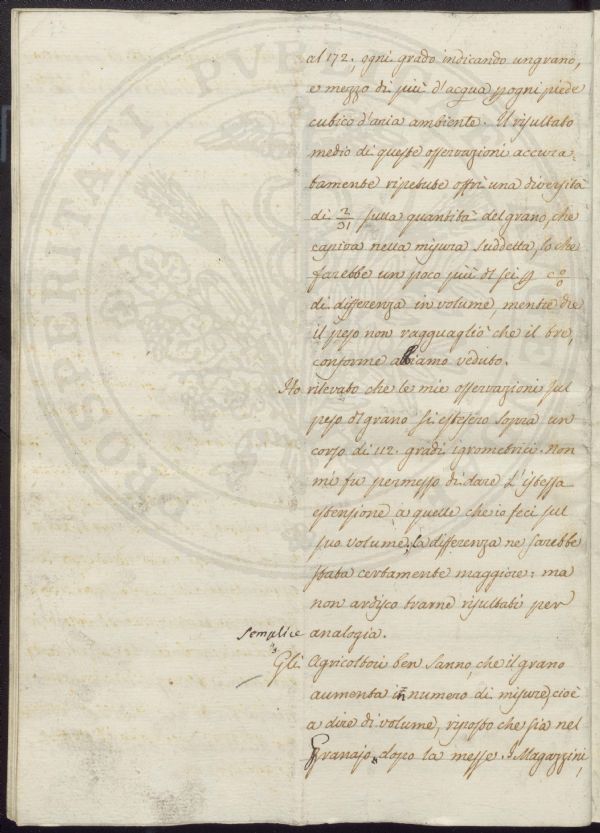 al 172, ogni grado indicando un grano,
e mezzo di più d'acqua p ogni piede
cubico d'aria ambiente. Il risultato
medio di queste osservazioni accura-
tamente ripetute offrì una diversità
di 2/31 sulla quantità del grano, che
capiva nella misura suddetta, lo che
farebbe un poco più di sei p c%
di differenza in volume, mentre che
il peso non ragguagliò che il tre,
conforme abbiamo veduto.
Ho rilevato che le mie osservazioni sul
peso di grano si estesero sopra un
corso di 112. gradi igrometrici. Non
mi fu permesso di dare l'istessa
estensione a quelle che io feci sul
suo volume, la differenza ne sarebbe
stata certamente maggiore: ma
non ardisco trarne risultati per
semplice analogia.
Gli Agricoltori ben sanno, che il grano
aumenta in numero di misure, cioè
a dire di volume, riposto che sia nel
Granajo dopo la messe. I Magazzini,
PROSPERITATI PUBLI